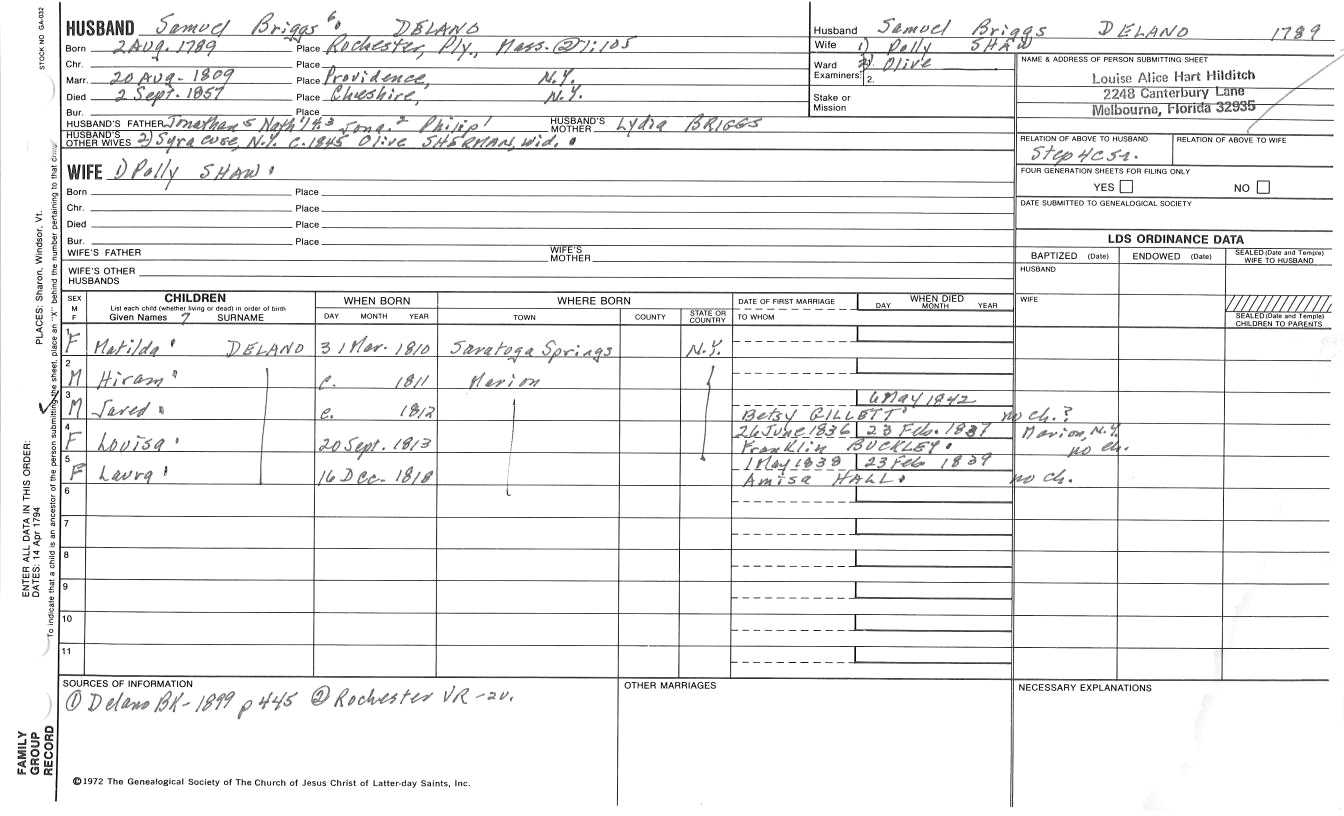 STOCK NO. GA-032
HUSBAND Samuel Briggs 6. DELANO
Born 2 Aug. 1789 Place Rochester, Ply., Mass. ②1:105
Chr. Place
Marr. 20 Aug. 1809 Place Providence, N.Y.
Died 2 Sept. 1857 Place Cheshire, N.Y.
Bur. Place
HUSBAND'S FATHER Jonathan 5 Nath'l 4.3 Jona. 2 Philip 1 HUSBAND'S MOTHER Lydia BRIGGS
HUSBAND'S OTHER WIVES 2) Syracuse, N.Y. c. 1845 Olive SHERMAN, wid.
WIFE 1) Polly SHAW
Born Place
Chr. Place
Died Place
Bur. Place
WIFE'S FATHER WIFE'S MOTHER
WIFE'S OTHER HUSBANDS
Husband Samuel Briggs DELANO 1789
Wife 1) Polly SHAW
Ward 2) Olive
Examiners: 2.
Stake or Mission
NAME & ADDRESS OF PERSON SUBMITTING SHEET
Louise Alice Hart Hilditch
2248 Canterbury Lane
Melbourne, Florida 32935
RELATION OF ABOVE TO HUSBAND RELATION OF ABOVE TO WIFE
Step 4C5r.
FOUR GENERATION SHEETS FOR FILING ONLY
YES NO
DATE SUBMITTED TO GENEALOGICAL SOCIETY
LDS ORDINANCE DATA
BAPTIZED (Date) ENDOWED (Date) SEALED (Date and Temple) WIFE TO HUSBAND
HUSBAND
WIFE
SEALED (Date and Temple) CHILDREN TO PARENTS
SEX M F CHILDREN WHEN BORN WHERE BORN DATE OF FIRST MARRIAGE WHEN DIED
List each child (whether living or dead) in order of birth
Given Names 7 SURNAME DAY MONTH YEAR TOWN COUNTY STATE OR COUNTRY TO WHOM DAY MONTH YEAR
1 F Matilda DELANO 31 Mar. 1810 Saratoga Springs N.Y.
2 M Hiram c. 1811 Marion
3 M Jared c. 1812 6 May 1842
Betsy GILLETT no ch.?
4 F Louisa 20 Sept. 1813 26 June 1836 23 Feb. 1837 Marion, N.Y.
Franklin BUCKLEY no ch.
5 F Laura 16 Dec. 1818 1 May 1838 23 Feb 1839
Amisa HALL no ch.
6
7
8
9
10
11
SOURCES OF INFORMATION
① Delano BK-1899 p 445 ② Rochester VR-2v.
OTHER MARRIAGES
NECESSARY EXPLANATIONS
©1972 The Genealogical Society of The Church of Jesus Christ of Latter-day Saints, Inc.
FAMILY GROUP RECORD
ENTER ALL DATA IN THIS ORDER:
DATES: 14 Apr 1794
PLACES: Sharon, Windsor, Vt.
To indicate that a child is an ancestor of the person submitting the sheet, place an "X" behind the number pertaining to that child